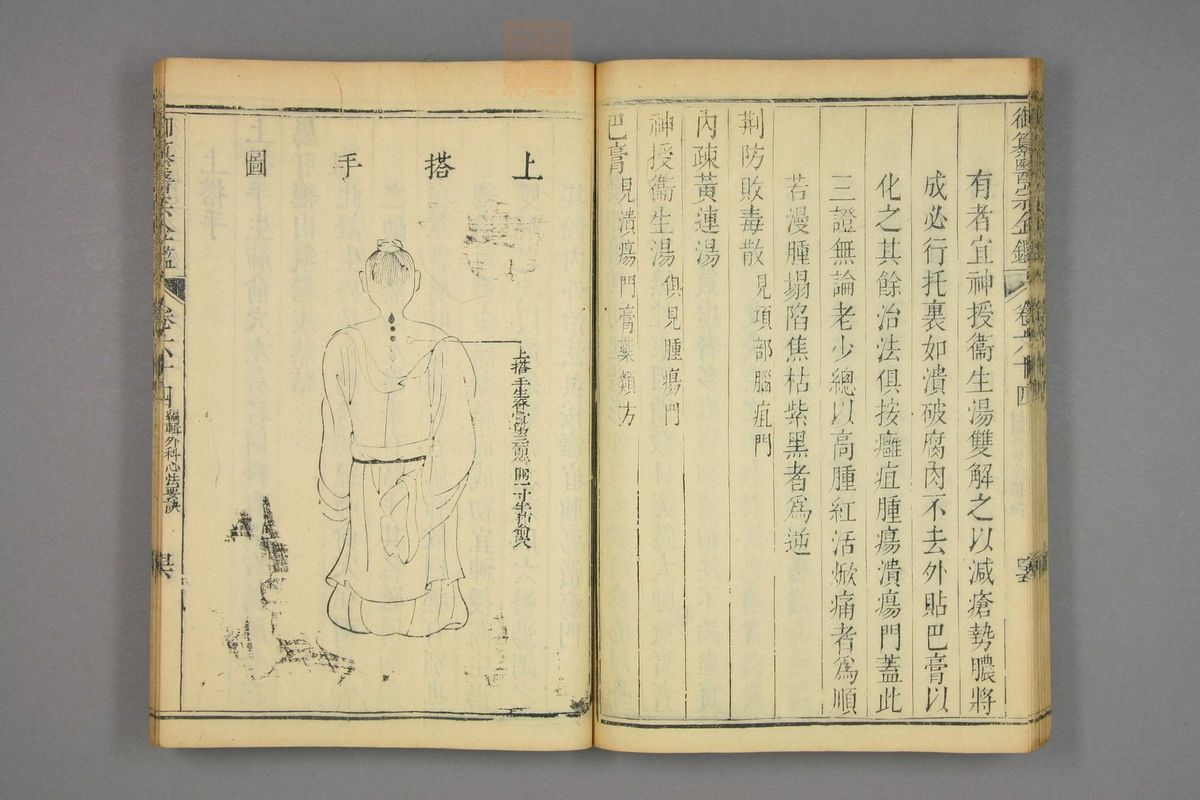 御纂醫宗金鑑
卷六十四
有者宜神授衞生湯雙解之以減瘡勢膿將
成必行托裏如潰破腐肉不去外貼巴膏以
化之其餘治法俱按癰疽腫瘍潰瘍門蓋此
三證無論老少總以高腫紅活焮痛者爲順
若漫腫塌陷焦枯紫黑者爲逆
荆防敗毒散見項部腦疽門
內疎黃連湯
神授衞生湯俱見腫瘍門
巴膏見潰瘍門膏藥類方
上搭手圖
上搭手生脊骨第三節旁開一寸半肺俞穴
御纂醫宗金鑑
卷六十四
編輯外科心法要訣